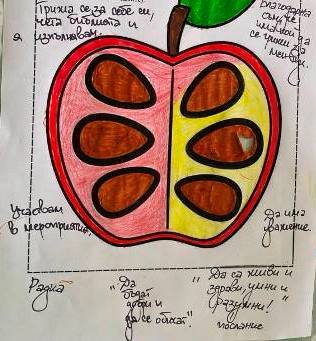 Грижа се за себе си,
чета библията и
я изпълнявам.
Благодарна
съм, че
има кой да
се грижи за
мен
Участвам
в мероприятия.
Да има
уважение.
Радка
"Да
бъдат
добри и
да се обичат".
"Да са живи и
здрави, умни и
разумни!"
послание